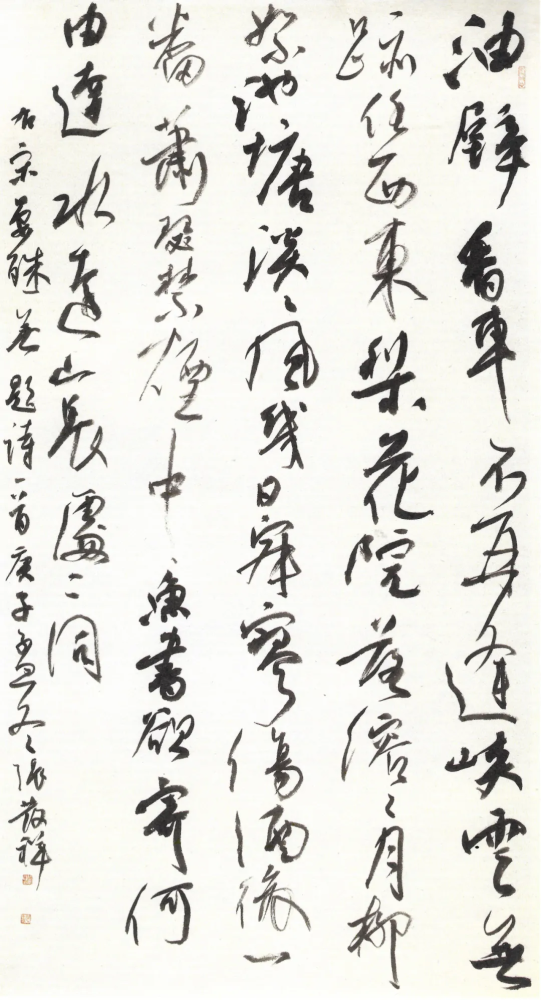 油壁香車不再逢峽雲無
跡任西東梨花院落溶々月柳
絮池塘淡々風幾日寂寥傷酒後一
番蕭瑟禁煙中魚書欲寄何
由達水遠山長處々同
右宋晏殊無題詩一首庚子孟冬張發祥